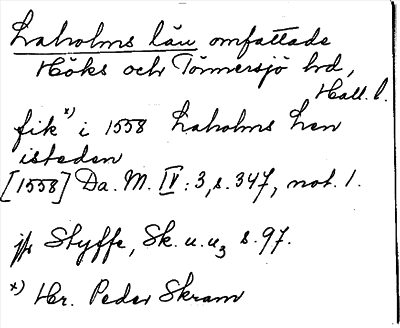 Laholms län omfattade
Höks och Tönnersjö hd,
Hall. l.
fik x) i 1558 Laholms len
isteden
[1558] Da. M. IV: 3, s. 347, not. 1.
jfr Styffe, Sk. u. u3 s. 97.
x) Hr. Peder Skram